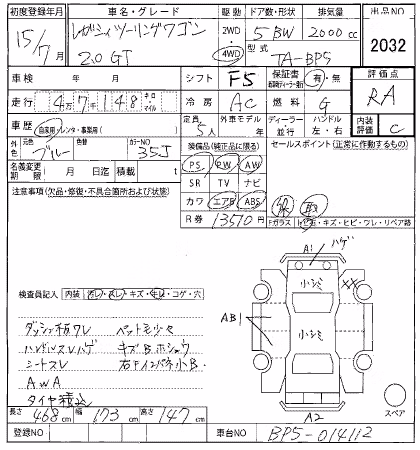 初度登録年月 車名・グレード 駆動 ドア数・形状 排気量 出品NO
15/7月 レガシィツーリングワゴン 2WD・4WD 5 BW 2000cc 2032
2.0 GT 型式 TA-BP5
車検 年 月 シフト F5 保証書 有・無 評価点
走行 4万7千148 キロ・マイル 冷房 AC 燃料 G RA
車歴 自家用・レンタ・事業用( ) 定員 5人 外車モデル 年 ディーラー・並行 ハンドル 左・右 内装評価 C
外色 元色 ブルー 色替 カラーNO 35J 装備品(純正品に限る) セールスポイント(正常に作動するもの)
PS PW AW
名義変更期限 月 日迄 積載 t SR TV ナビ
注意事項(欠品・修復・不具合箇所および状態) カワ エアB ABS 保 取
R券 13510円
Fガラス
キズ・ヒビ・ワレ・リペア跡
A1 ハゲ
小シミ
XX
検査員記入 内装
キズ
コゲ・穴
AB1
小シミ
ダッシュ板ワレ ペット毛少々
ハンドルスレハゲ キズBホシュウ
シートスレ 右Fインパネ小B
AWA
タイヤ積込
スペア
長さ 468cm 幅 173cm 高さ 147cm
A2
登録NO 車台NO BP5-014112